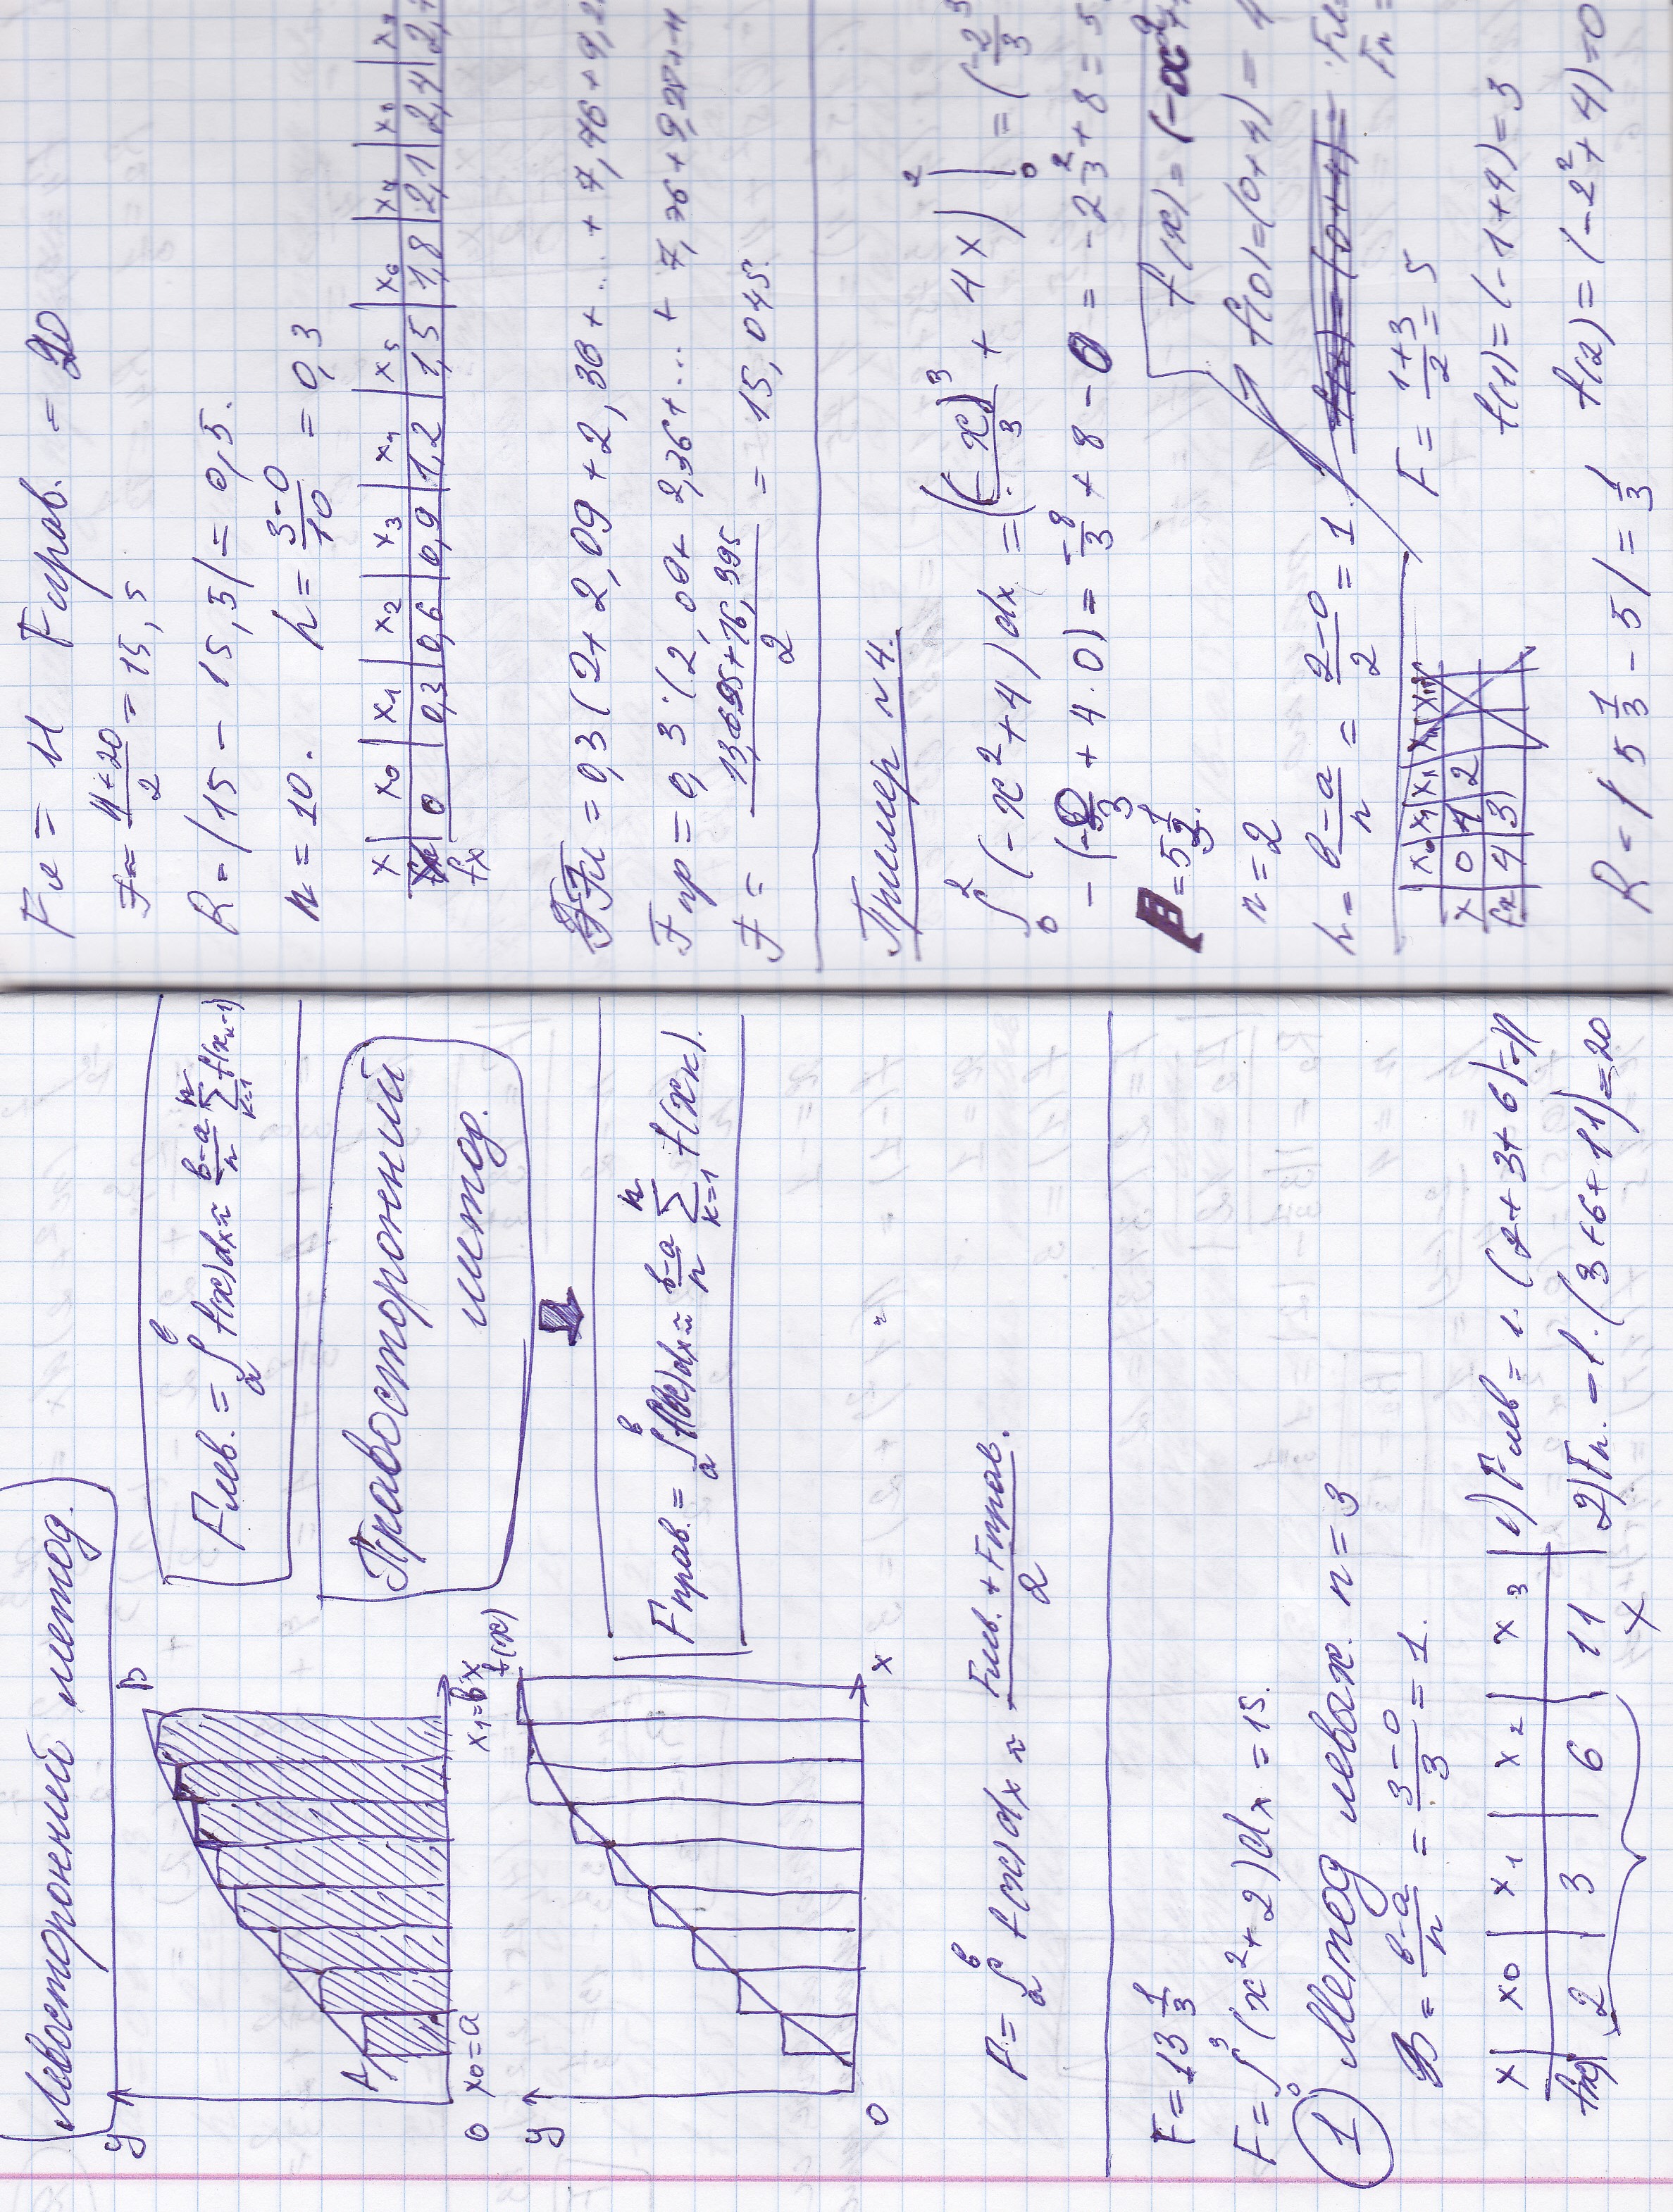 Левосторонний метод.
y
A
B
0 x0=a x1=b x
Fлев. = ∫ₐᵇ f(x)dx ≈ (b-a)/n · ∑ₖ₌₁ⁿ f(xₖ-1)
Правосторонний
метод.
y
f(x)
0 x
Fправ. = ∫ₐᵇ f(x)dx ≈ (b-a)/n ∑ₖ₌₁ⁿ f(xк).
F = ∫ₐᵇ f(x)dx ≈ (Fлев. + Fправ.)/2
F = 13 1/3
F = ∫₀³ (x²+2)dx = 15.
① Метод левых. n = 3
= (b-a)/n = (3-0)/3 = 1.
x | x0 | x1 | x2 | x3
f(x) | 2 | 3 | 6 | 11
x
1) Fлев = 1·(2+3+6)=11
2) Fп. = 1·(3+6+11)=20
Fл = 11 Fправ. = 20
F = (11+20)/2 = 15,5
R = |15 - 15,5| = 0,5.
n = 10. h = (3-0)/10 = 0,3
x | x0 | x1 | x2 | x3 | x4 | x5 | x6 | x7 | x8 | x9
0 | 0,3 | 0,6 | 0,9 | 1,2 | 1,5 | 1,8 | 2,1 | 2,4 | 2,7
fx
Fл = 0,3(2+2,09+2,36+...+7,76+9,2
Fпр = 0,3·(2,09+2,36+...+7,76+9,29+11
F = (13,695+16,395)/2 = 15,045.
Пример №4.
∫₀² (-x²+4)dx = ((-x)³/3 + 4x)|₀² = (-2³/3
- (-0/3 + 4·0) = -8/3 + 8 - 0 = -2 2/3 + 8 = 5
= 5 1/3.
f(x) = (-x²+
n = 2
f(0) = (0+4) = 4
h = (b-a)/n = (2-0)/2 = 1.
Fл=
Fп =
x | x0 | x1 | x1
x | 0 | 1 | 2
fx | 4 | 3
F = (1+3)/2 = 5
f(1) = (-1+4) = 3
R = |5 1/3 - 5| = 1/3
f(2) = (-2²+4)=0